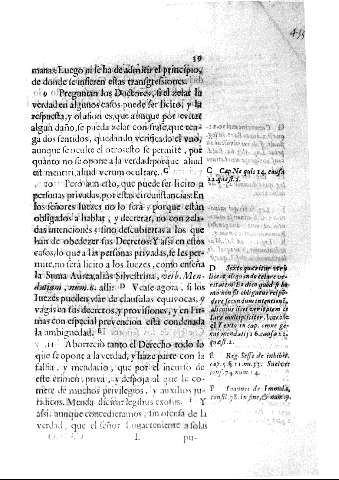 19
manas: Luego ni se ha de admitir el principio,
de donde se infieren estas transgresiones.
9 Preguntan los Doctores, si el zelar la
verdad en algunos casos puede ser licito, y la
respuesta, y es, que aunque por evitar
algun daño, se pueda zelar con frase, que tenga
dos sentidos, quedando verificado el vno,
aunque se oculte el otro, esto se permite, por
quanto no se opone a la verdad: porque aliud
est mentiri, aliud verum occultare. C
10 Pero aun esto, que puede ser licito a
personas privadas, por estas circunstancias: En
los señores Iuezes no lo será, porque están
obligados a hablar, y decretar, no con zeladas
intenciones, sino descubiertas a los que
han de obedezer sus Decretos: Y assi en estos
casos, lo que a las personas privadas, se les permite,
no será licito a los Iuezes, como enseña
la Suma Aurea, alias Silvestrina, verb. Mendatium,
num. 6. alli: D Vease agora, si los
Iuezes pueden vsar de clausulas equivocas, y
vagas en sus decretos, y provisiones, y en Firmas
con especial prevencion está condenada
la ambiguedad. E
11 Aborreciò tanto el Derecho todo lo
que se opone a la verdad, y haze parte con la
falsia, y mendacio, que por el incurso de
este crimen, priva, y despoja al que le comete
de muchos privilegios, y auxilios juridicos.
Menda dicitur legibus exosus. F Y
assi, aunque concediéramos, sin ofensa de la
verdad, que el señor Lugarteniente a solas
L pu-
C Cap. Ne quis 24. causa
22. quæst. 2.
D Sixto queritur vtrũ
liceat aliquando celare veritatem:
Et dico quod si homo
non sit obligatus respondere
secundum intentionẽ,
aliquas licet veritatem celare
multipliciter.
el Texto in cap. omne genus
mendatij 22. causa 22.
quæst. 2.
E Reg. Sesse de inhibit.
cap. 5. § 11. nu. 53. Suelves
cons. 74. num. 14.
F Ioannes de Immola,
consil. 78. in fine, &